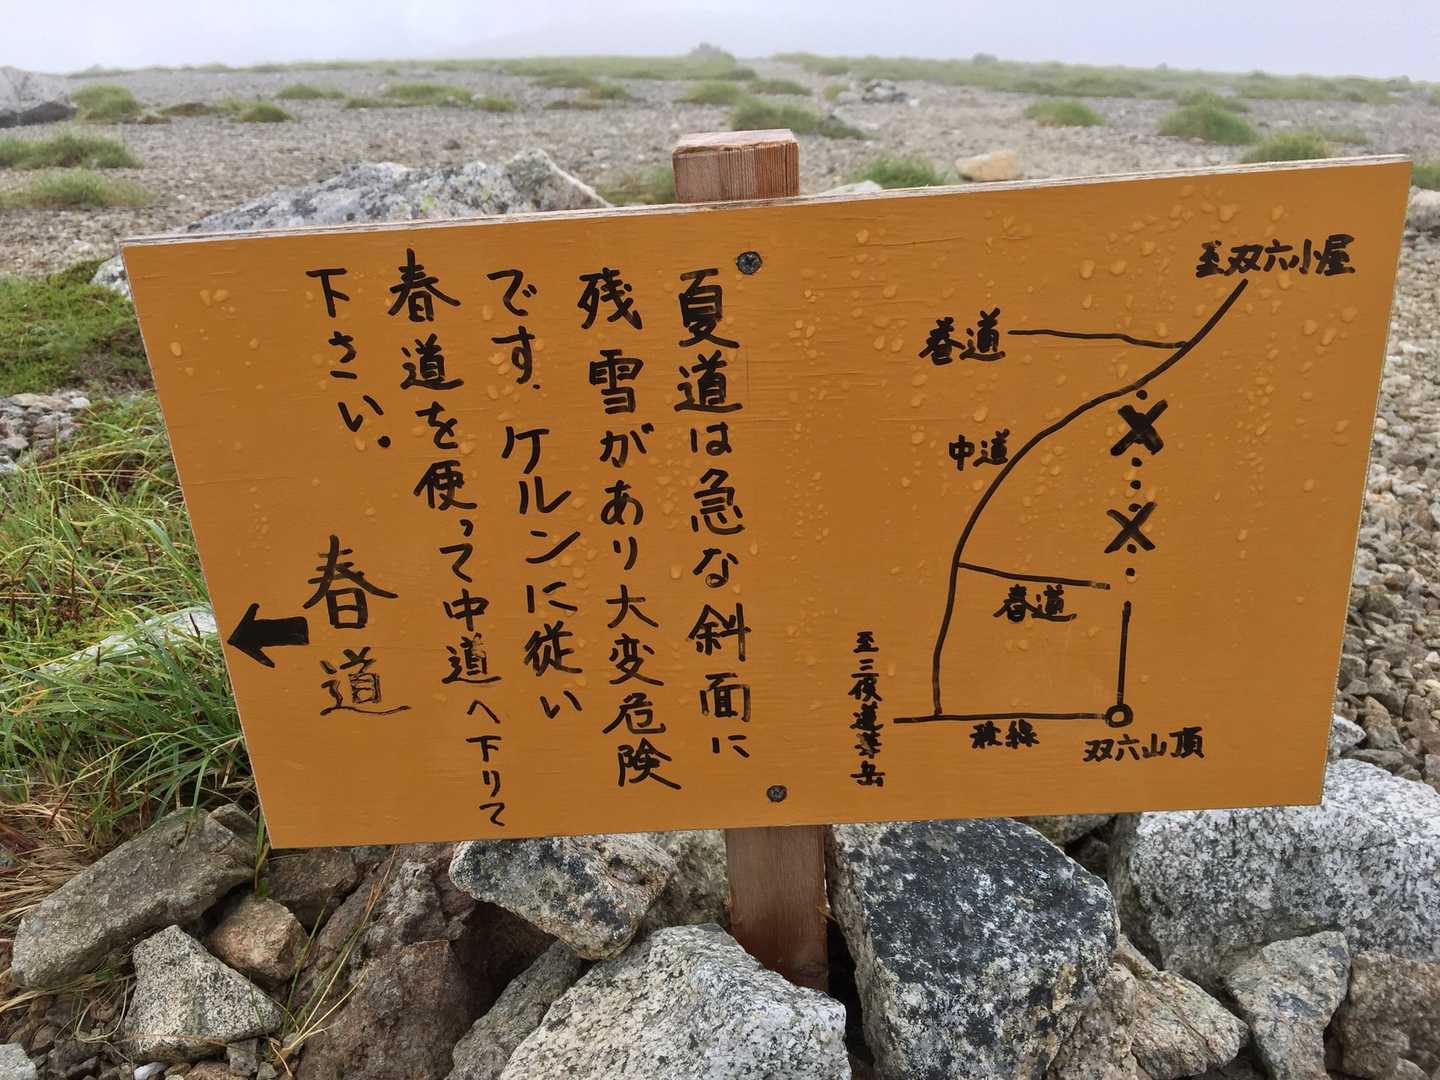 夏道は急な斜面に
残雪があり大変危険
です。ケルンに従い
春道を使って中道へ下りて
下さい。
春道
至双六小屋
巻道
中道
春道
至三俣蓮華岳
稜線
双六山頂